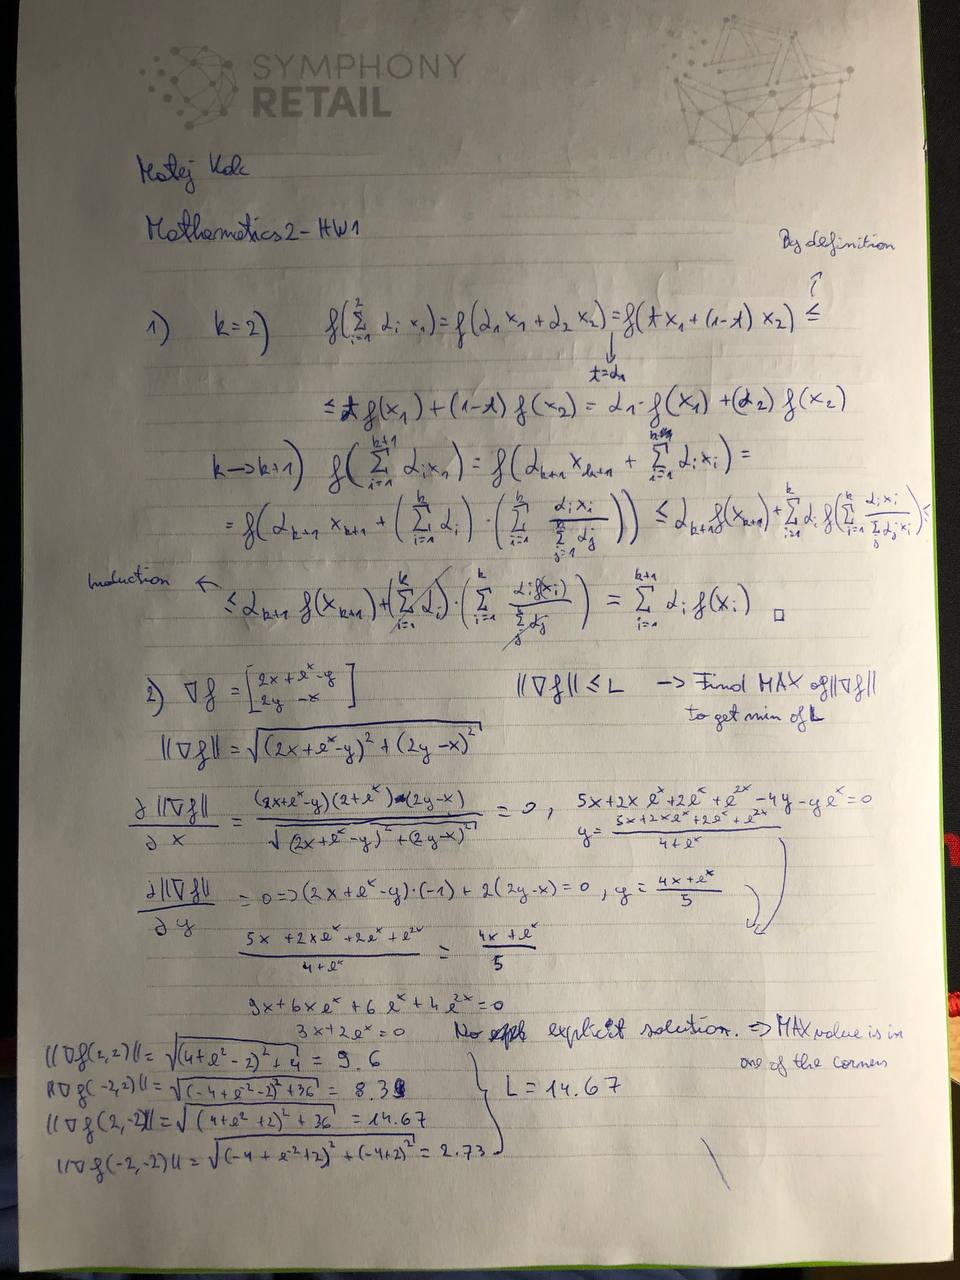 SYMPHONY
RETAIL
Matej
Mathematics 2 - HW1
By definition
1) k=2) f(∑_{i=1}^{2} α_i x_1) = f(α_1 x_1 + α_2 x_2) = f(t x_1 + (1-t) x_2) ≤
t=α_1
≤ t f(x_1) + (1-t) f(x_2) = α_1 · f(x_1) + (α_2) f(x_2)
k→k+1) f(∑_{i=1}^{k+1} α_i x_1) = f(α_{k+1} x_{k+1} + ∑_{i=1}^{k} α_i x_i) =
= f(α_{k+1} x_{k+1} + (∑_{i=1}^{k} α_i) · (∑_{i=1}^{k} α_i x_i / ∑_{j=1}^{k} α_j)) ≤ α_{k+1} f(x_{k+1}) + ∑_{i=1}^{k} α_i f(∑_{i=1}^{k} α_i x_i / ∑_j α_j x_i) ≤
Induction ←
≤ α_{k+1} f(x_{k+1}) + (∑_{i=1}^{k} α_i) · (∑_{i=1}^{k} α_i f(x_i) / ∑_j^{k} α_j) = ∑_{i=1}^{k+1} α_i f(x_i) □
2) ∇f = [2x + e^x - y
2y - x] ||∇f|| ≤ L → Find MAX of ||∇f||
to get min of L
||∇f|| = √((2x+e^x-y)^2 + (2y-x)^2)
∂||∇f|| / ∂x = (2x+e^x-y)(2+e^x) - (2y-x) / √((2x+e^x-y)^2 + (2y-x)^2) = 0, 5x+2x e^x+2e^x+e^{2x}-4y-ye^x=0
y = 5x+2xe^x+2e^x+e^{2x} / 4+e^x
∂||∇f|| / ∂y = 0 => (2x+e^x-y)·(-1) + 2(2y-x) = 0, y = 4x+e^x / 5
5x+2xe^x+2e^x+e^{2x} / 4+e^x = 4x+e^x / 5
9x+6xe^x+6e^x+4e^{2x}=0
3x+2e^x=0 No explicit solution. => MAX value is in
one of the corners
||∇f(2,2)|| = √((4+e^2-2)^2+4) = 9.6
||∇f(-2,2)|| = √((-4+e^{-2}-2)^2+36) = 8.39
||∇f(2,-2)|| = √((4+e^2+2)^2+36) = 14.67
||∇f(-2,-2)|| = √((-4+e^{-2}+2)^2+(-4+2)^2) = 2.73
L = 14.67